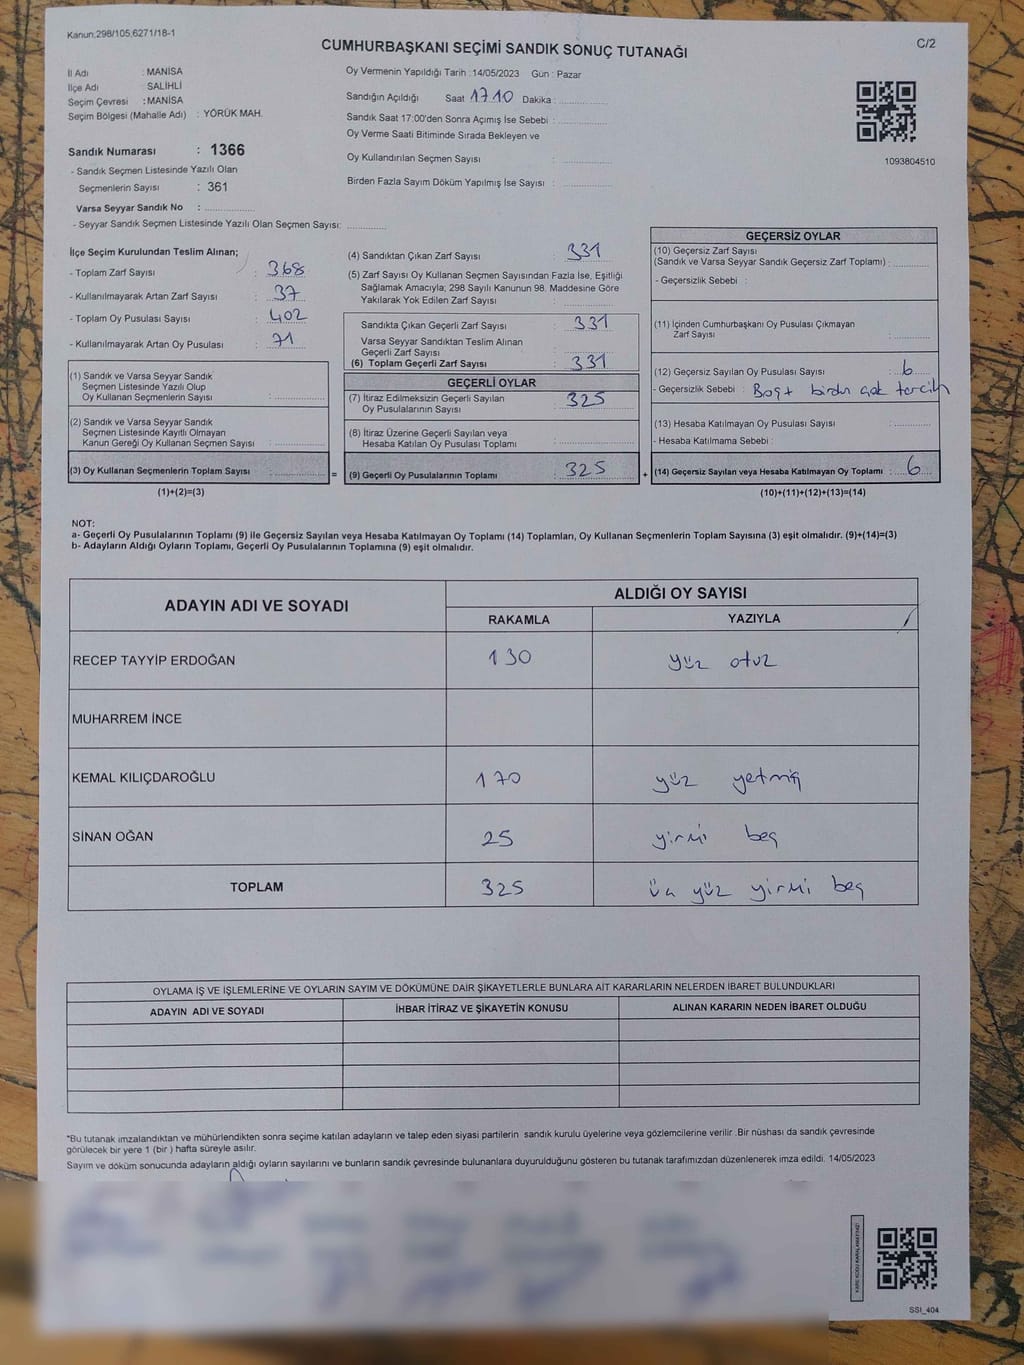 Kanun,298/105,6271/18-1
C/2
CUMHURBAŞKANI SEÇİMİ SANDIK SONUÇ TUTANAĞI
İl Adı : MANİSA
İlçe Adı : SALİHLİ
Seçim Çevresi : MANİSA
Seçim Bölgesi (Mahalle Adı) : YÖRÜK MAH.
Sandık Numarası : 1366
- Sandık Seçmen Listesinde Yazılı Olan
Seçmenlerin Sayısı : 361
Varsa Seyyar Sandık No : ..............
- Seyyar Sandık Seçmen Listesinde Yazılı Olan Seçmen Sayısı: ..............
Oy Vermenin Yapıldığı Tarih : 14/05/2023 Gün : Pazar
Sandığın Açıldığı Saat 17 10 Dakika : ..............
Sandık Saat 17:00'den Sonra Açımış İse Sebebi : ..............
Oy Verme Saati Bitiminde Sırada Bekleyen ve
Oy Kullandırılan Seçmen Sayısı : ..............
Birden Fazla Sayım Döküm Yapılmış İse Sayısı : ..............
1093804510
İlçe Seçim Kurulundan Teslim Alınan;
- Toplam Zarf Sayısı : 368
- Kullanılmayarak Artan Zarf Sayısı : 37
- Toplam Oy Pusulası Sayısı : 402
- Kullanılmayarak Artan Oy Pusulası : 71
(1) Sandık ve Varsa Seyyar Sandık
Seçmen Listesinde Yazılı Olup
Oy Kullanan Seçmenlerin Sayısı : ..............
(2) Sandık ve Varsa Seyyar Sandık
Seçmen Listesinde Kayıtlı Olmayan
Kanun Gereği Oy Kullanan Seçmen Sayısı : ..............
(3) Oy Kullanan Seçmenlerin Toplam Sayısı : ..............
(1)+(2)=(3)
(4) Sandıktan Çıkan Zarf Sayısı : 331
(5) Zarf Sayısı Oy Kullanan Seçmen Sayısından Fazla İse, Eşitliği
Sağlamak Amacıyla; 298 Sayılı Kanunun 98. Maddesine Göre
Yakılarak Yok Edilen Zarf Sayısı : ..............
Sandıkta Çıkan Geçerli Zarf Sayısı : 331
Varsa Seyyar Sandıktan Teslim Alınan
Geçerli Zarf Sayısı : ..............
(6) Toplam Geçerli Zarf Sayısı : 331
GEÇERLİ OYLAR
(7) İtiraz Edilmeksizin Geçerli Sayılan
Oy Pusulalarının Sayısı : 325
(8) İtiraz Üzerine Geçerli Sayılan veya
Hesaba Katılan Oy Pusulası Toplamı : ..............
= (9) Geçerli Oy Pusulalarının Toplamı : 325 +
GEÇERSİZ OYLAR
(10) Geçersiz Zarf Sayısı
(Sandık ve Varsa Seyyar Sandık Geçersiz Zarf Toplamı) : ..............
- Geçersizlik Sebebi :
(11) İçinden Cumhurbaşkanı Oy Pusulası Çıkmayan
Zarf Sayısı : ..............
(12) Geçersiz Sayılan Oy Pusulası Sayısı : 6
- Geçersizlik Sebebi : Boş + birden çok tercih
(13) Hesaba Katılmayan Oy Pusulası Sayısı : ..............
- Hesaba Katılmama Sebebi :
(14) Geçersiz Sayılan veya Hesaba Katılmayan Oy Toplamı : 6
(10)+(11)+(12)+(13)=(14)
NOT:
a- Geçerli Oy Pusulalarının Toplamı (9) ile Geçersiz Sayılan veya Hesaba Katılmayan Oy Toplamı (14) Toplamları, Oy Kullanan Seçmenlerin Toplam Sayısına (3) eşit olmalıdır. (9)+(14)=(3)
b- Adayların Aldığı Oyların Toplamı, Geçerli Oy Pusulalarının Toplamına (9) eşit olmalıdır.
ADAYIN ADI VE SOYADI
ALDIĞI OY SAYISI
RAKAMLA YAZIYLA
RECEP TAYYİP ERDOĞAN 130 yüz otuz
MUHARREM İNCE
KEMAL KILIÇDAROĞLU 170 yüz yetmiş
SİNAN OĞAN 25 yirmi beş
TOPLAM 325 üç yüz yirmi beş
OYLAMA İŞ VE İŞLEMLERİNE VE OYLARIN SAYIM VE DÖKÜMÜNE DAİR ŞİKAYETLERLE BUNLARA AİT KARARLARIN NELERDEN İBARET BULUNDUKLARI
ADAYIN ADI VE SOYADI İHBAR İTİRAZ VE ŞİKAYETİN KONUSU ALINAN KARARIN NEDEN İBARET OLDUĞU
*Bu tutanak imzalandıktan ve mühürlendikten sonra seçime katılan adayların ve talep eden siyasi partilerin sandık kurulu üyelerine veya gözlemcilerine verilir .Bir nüshası da sandık çevresinde
görülecek bir yere 1 (bir ) hafta süreyle asılır.
Sayım ve döküm sonucunda adayların aldığı oyların sayılarını ve bunların sandık çevresinde bulunanlara duyurulduğunu gösteren bu tutanak tarafımızdan düzenlenerek imza edildi. 14/05/2023
SSI_404